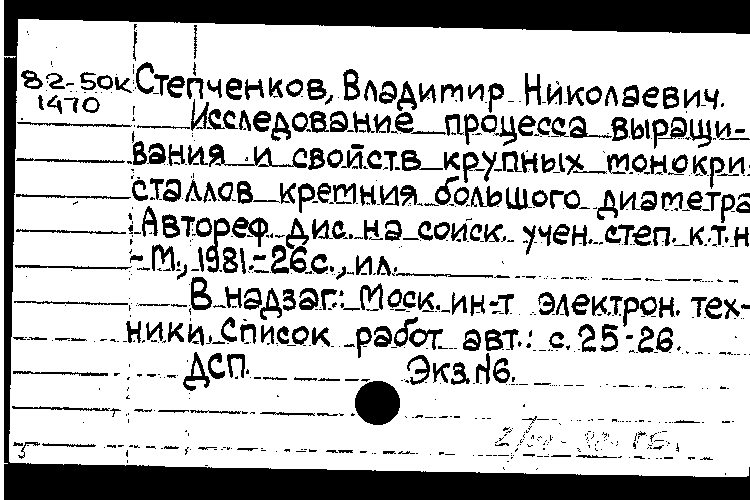 82-50к Степченков, Владимир Николаевич.
1470
Исследование процесса выращи-
вания и свойств крупных монокри-
сталлов кремния большого диаметра
Автореф. дис. на соиск. учен. степ. к.т.н
- М., 1981.- 26с., ил.
В надзаг.: Моск. ин-т электрон. тех-
ники. Список работ авт.: с. 25-26.
ДСП. Экз. №6.